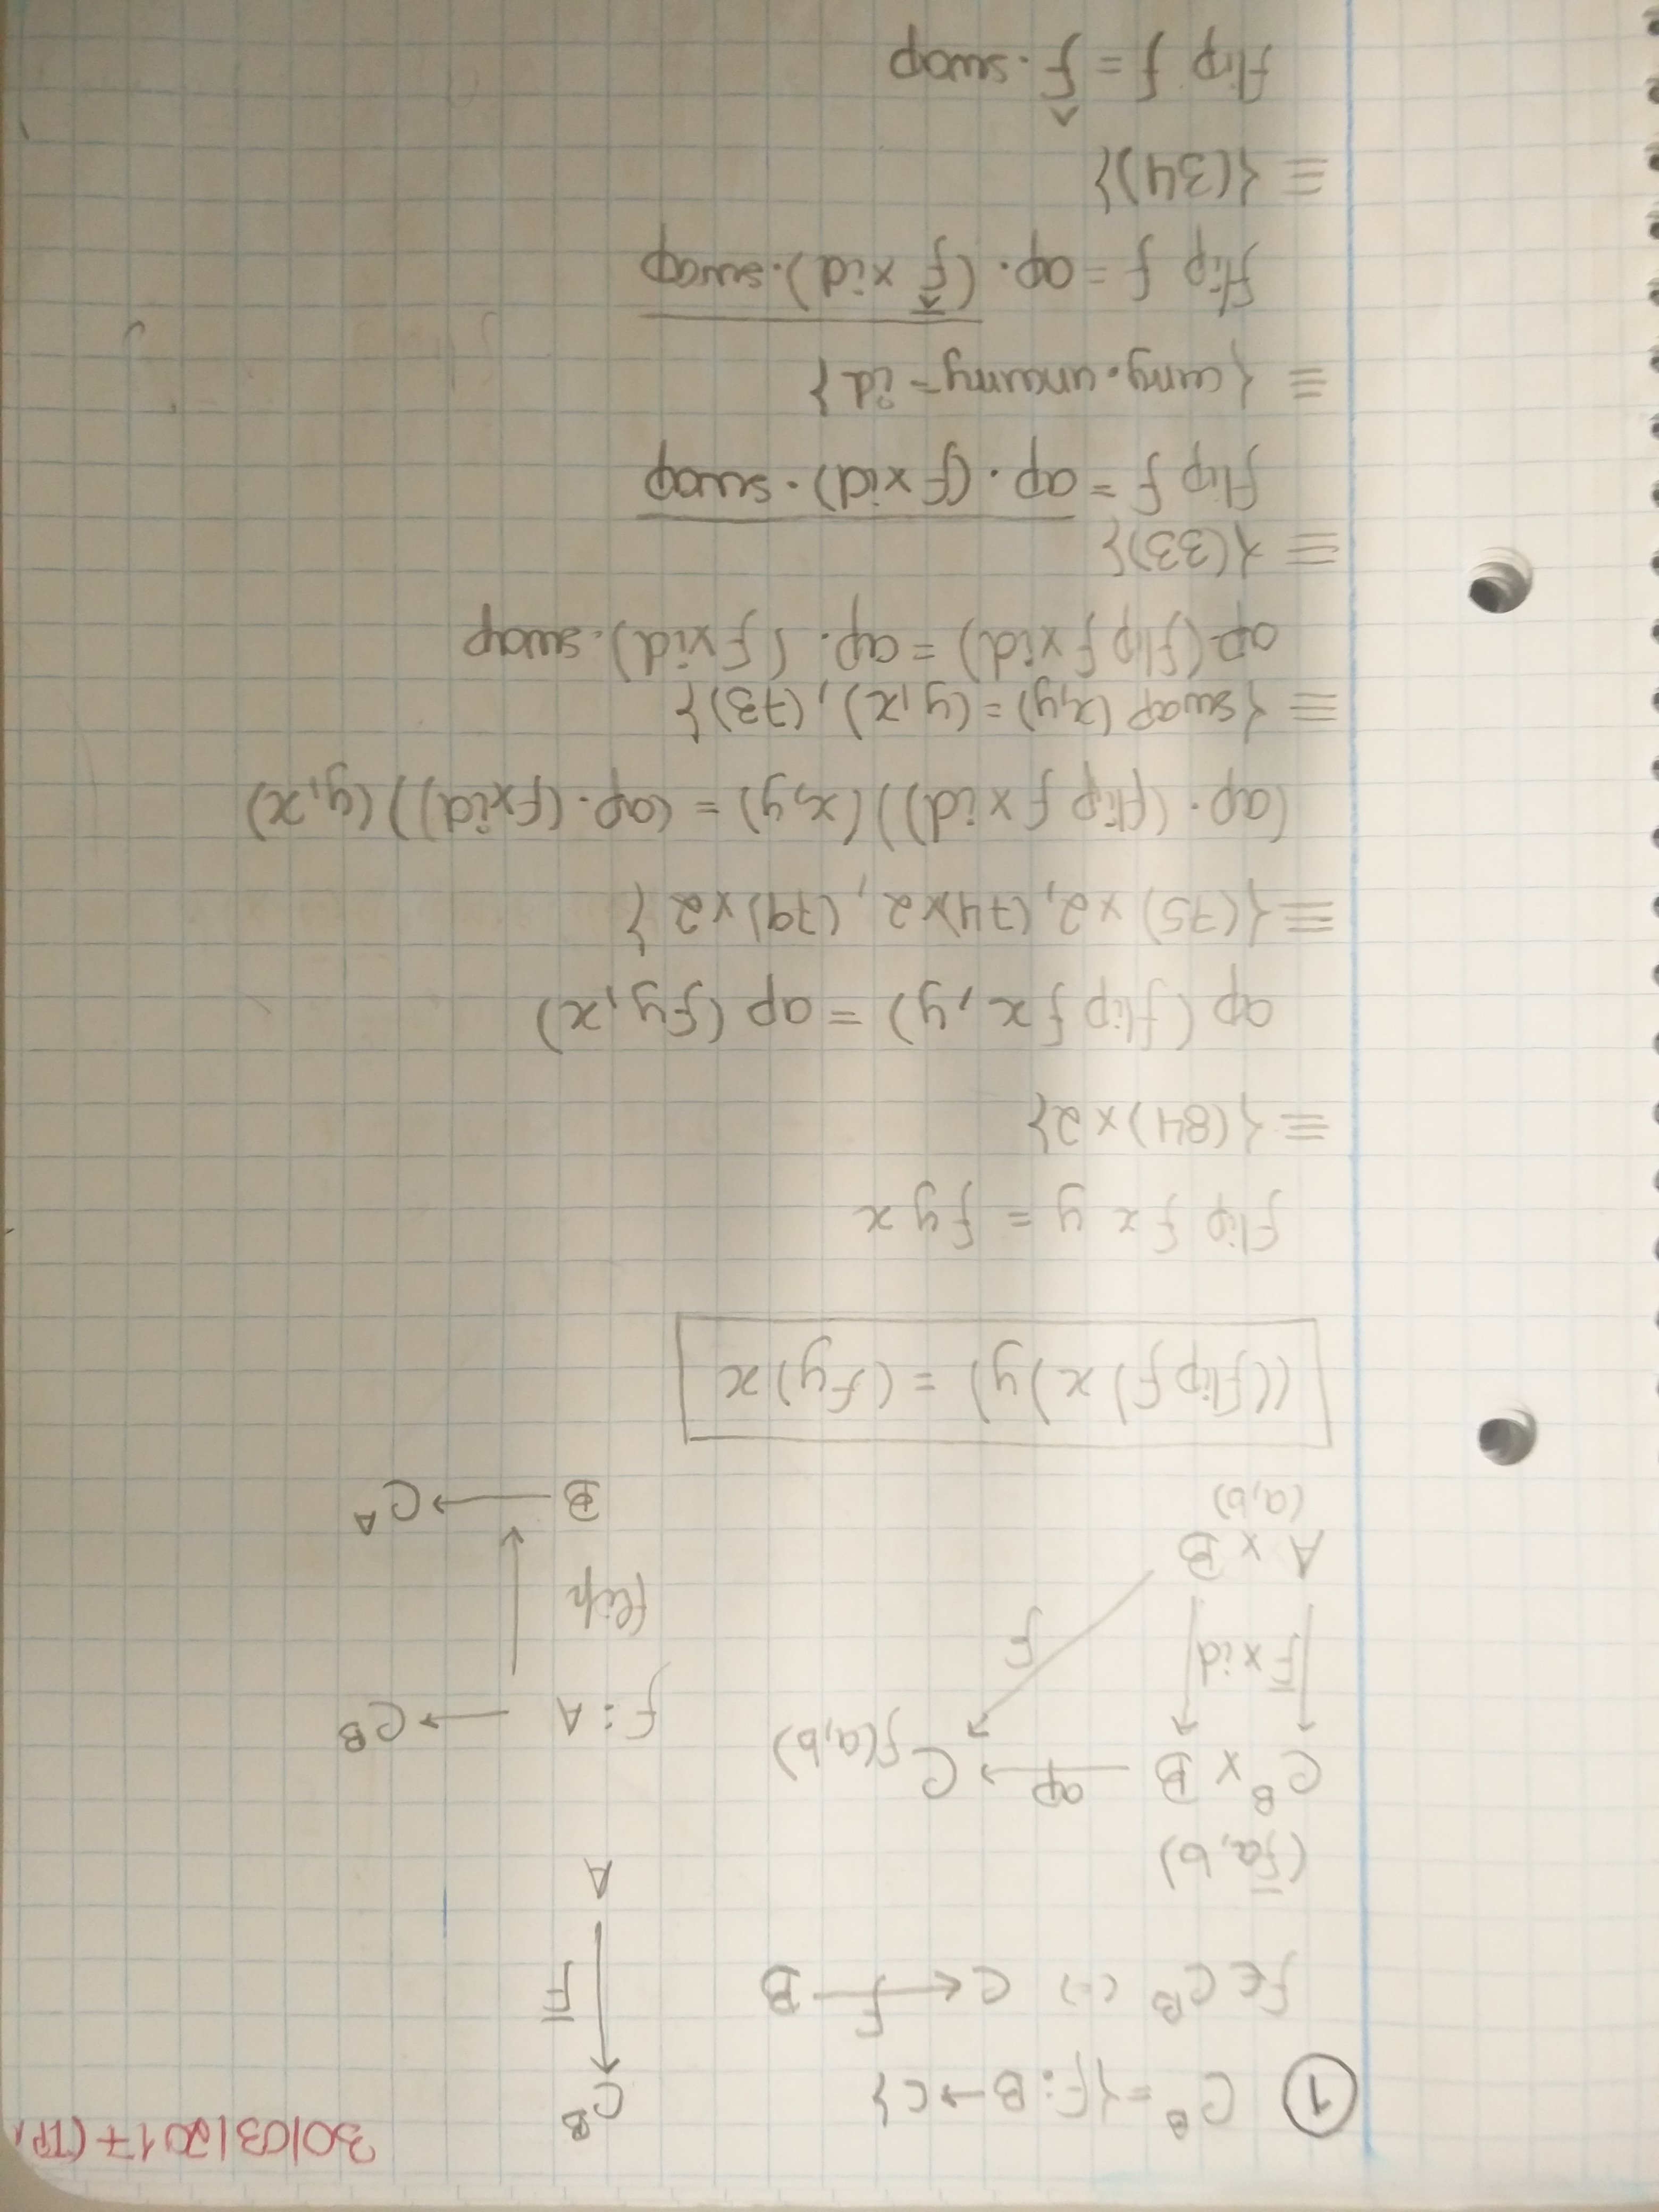 30/03/2017 (TP
① C^B = {f : B → C}
f ∈ C^B (=) C ←f— B
C^B
↑ f̅
A
(f̅a, b)
C^B × B —ap→ C f(a,b)
f̅ × id
f
A × B
(a,b)
f : A → C^B
flip ↓
B → C^A
((flip f) x) y) = (f y) x
flip f x y = f y x
≡ {(84) × 2}
ap (flip f x , y) = ap (f y, x)
≡ {(75) × 2, (74) × 2, (79) × 2}
(ap · (flip f × id)) (x, y) = (ap · (f × id)) (y, x)
≡ {swap (x,y) = (y,x), (73)}
ap · (flip f × id) = ap · (f × id) · swap
≡ {(33)}
flip f = \overline{ap · (f × id) · swap}
≡ {curry · uncurry = id}
flip f = ap · \overline{(\overline{\hat{f}} × id) · swap}
≡ {(34)}
flip f = \hat{f} · swap